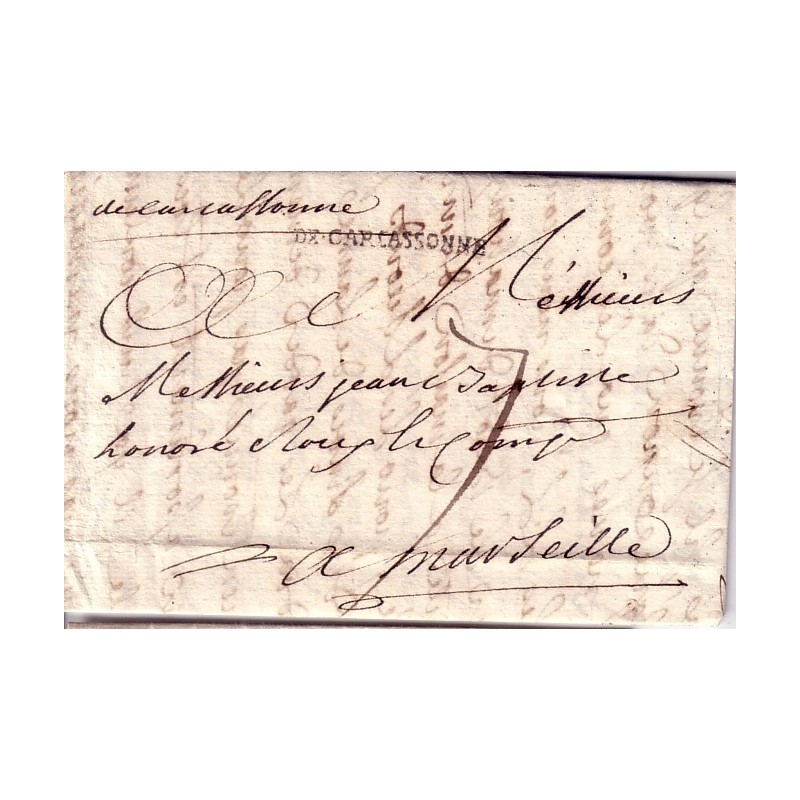 de Carcassonne
DE·CARCASSONNE
A Messieurs
Messieurs jean Baptiste
honoré Roux & Comp
7
a marseille